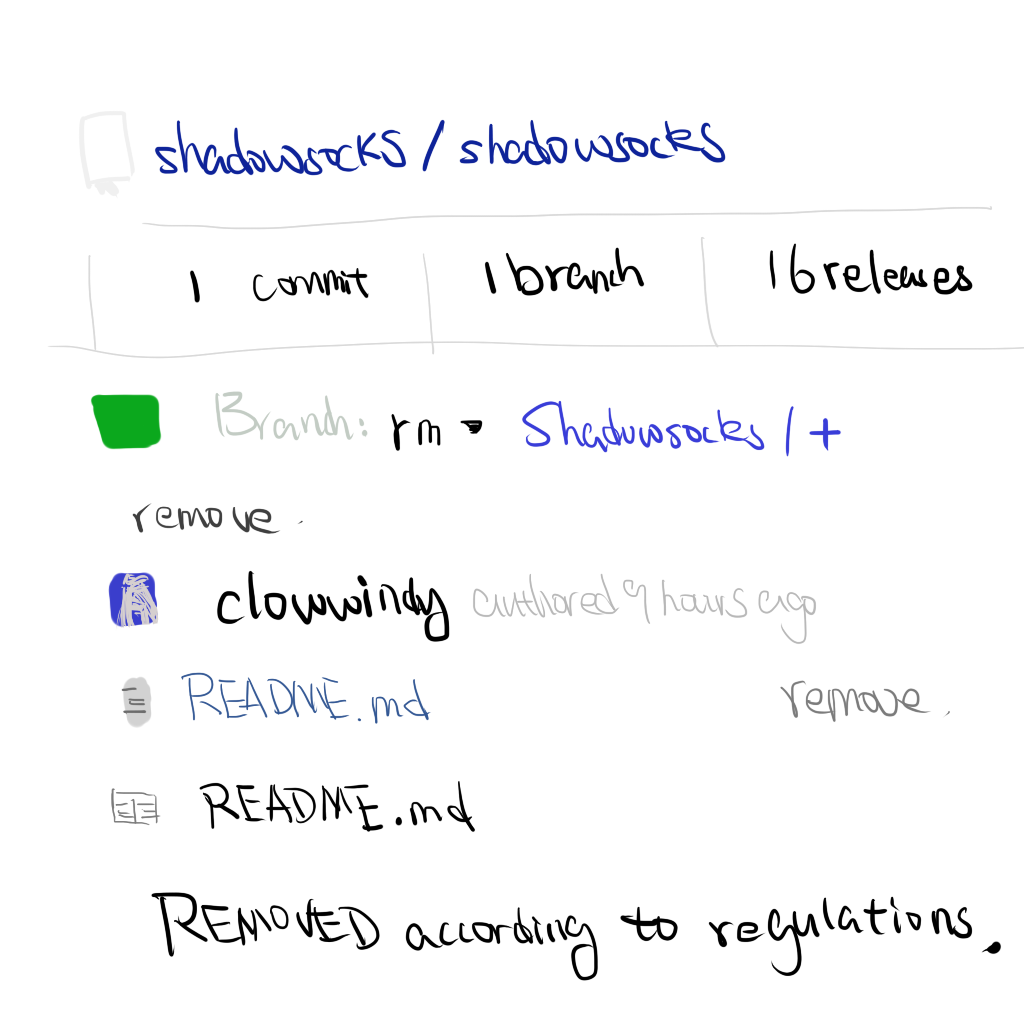 shadowsocks / shadowsocks
1 commit 1 branch 16 releases
Branch: rm Shadowsocks / +
remove.
clowwindy authored 9 hours ago
README.md remove.
README.md
REMOVED according to regulations.